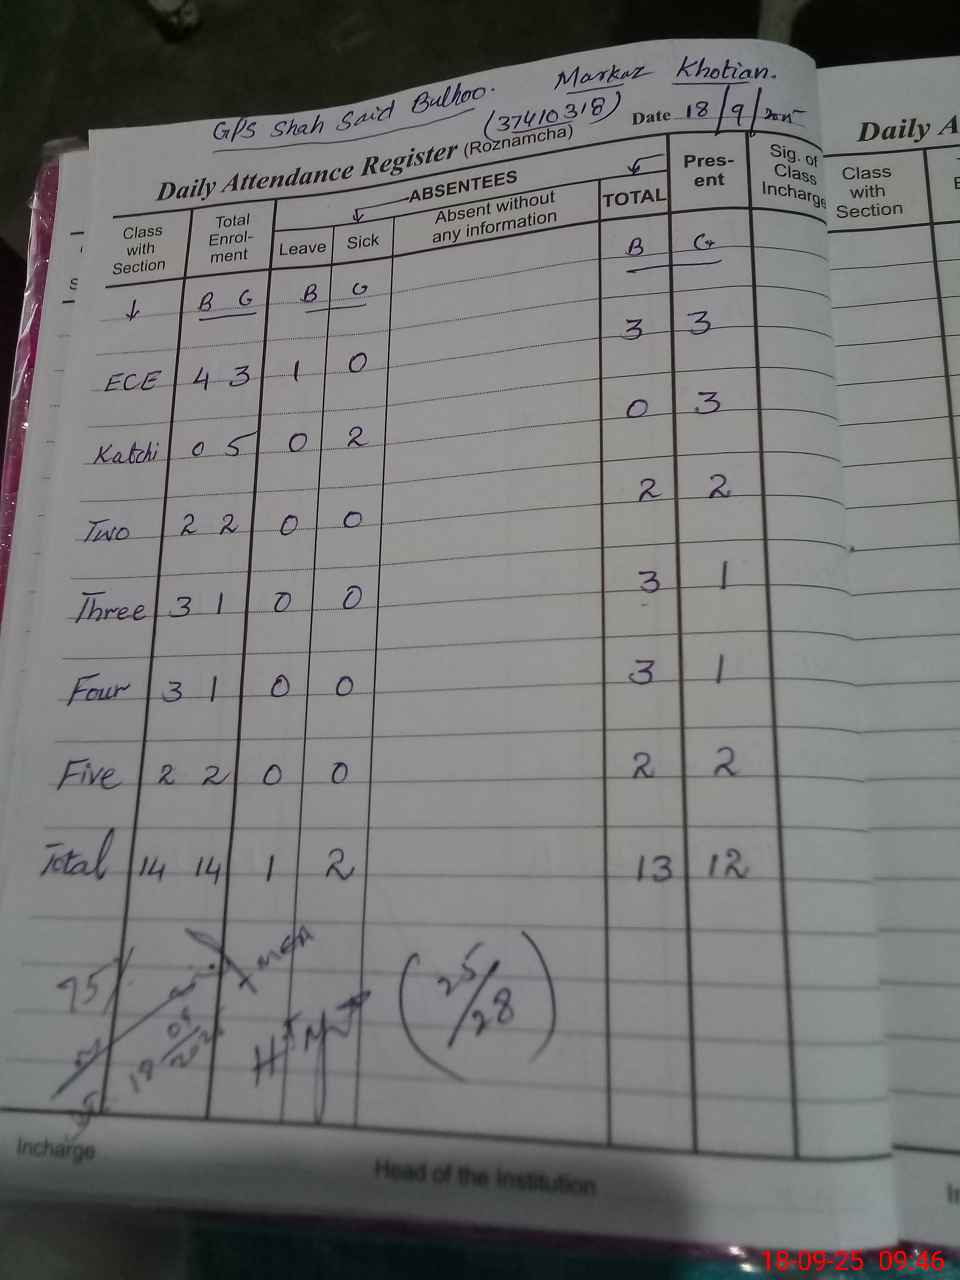 GPS Shah Said Bulhoo. Markaz Khotian.
(37410318) Date 18/9/2025
Daily Attendance Register (Roznamcha)
Class with Section
Total Enrol- ment
ABSENTEES
Leave
Sick
Absent without any information
TOTAL
Pres- ent
Sig. of Class Incharge
↓ B G B G B G
ECE 4 3 1 0 3 3
Katchi 0 5 0 2 0 3
Two 2 2 0 0 2 2
Three 3 1 0 0 3 1
Four 3 1 0 0 3 1
Five 2 2 0 0 2 2
Total 14 14 1 2 13 12
(25/28)
Incharge
Head of the Institution
Daily A
Class with Section
18-09-25 09:46